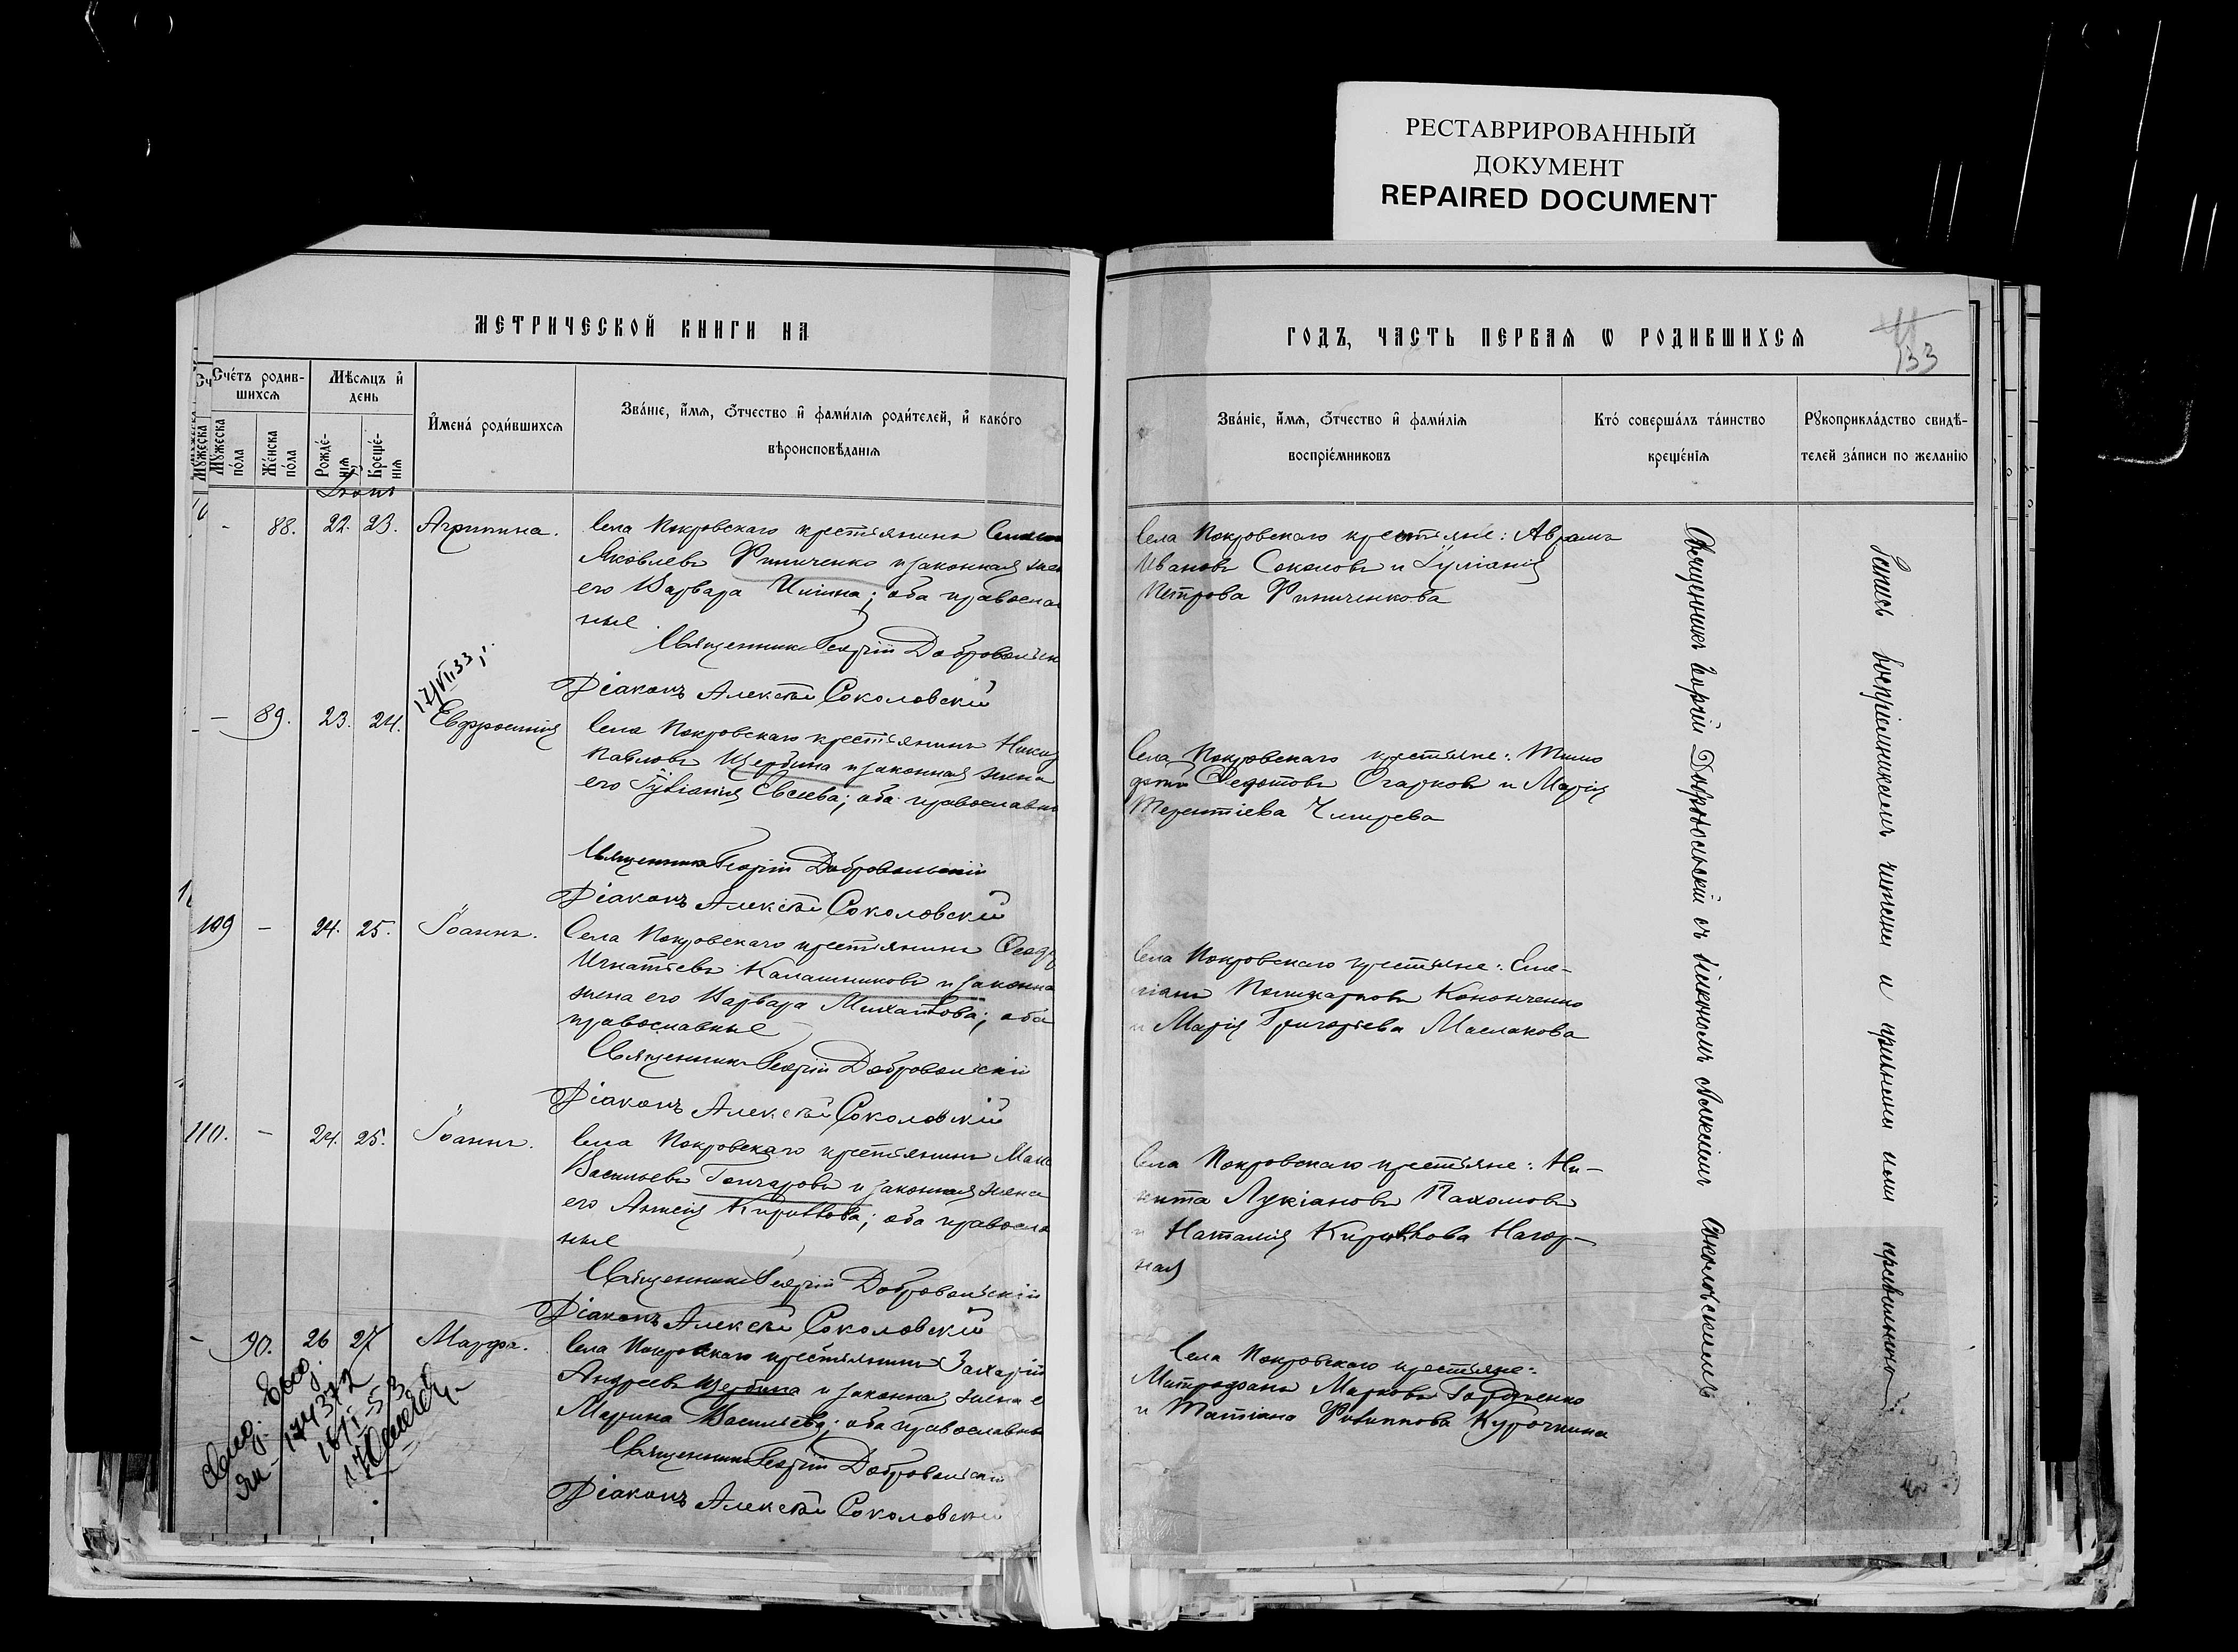 РЕСТАВРИРОВАННЫЙ
ДОКУМЕНТ
REPAIRED DOCUMENT
МЕТРИЧЕСКОЙ КНИГИ НА
ГОДЪ, ЧАСТЬ ПЕРВАЯ Ѡ РОДИВШИХСЯ
133
Счетъ родив-
шихся
Мѣсяцъ и
день
Мужеска
пола
Женска
пола
Рожде-
нія
Креще-
нія
Имена родившихся
Званіе, имя, отчество и фамилія родителей, и какого
вѣроисповѣданія
Званіе, имя, отчество и фамилія
воспріемниковъ
Кто совершалъ таинство
крещенія
Рукоприкладство свидѣ-
телей записи по желанію
- 88. 22. 23. Агрипина.
Села Покровскаго крестьянинъ
Яковлевъ Финиченко и законная
его Варвара Ильина; оба правосла
ные
Священникъ Георгій Доброволь
Діаконъ Алексѣй Соколовскій
Села Покровскаго крестьяне: Авраамъ
Ивановъ Соколовъ и Іуліанія
Петрова Финиченкова
17/VII 33
- 89. 23. 24. Евфросинія
Села Покровскаго крестьянинъ
Павловъ Щербина и законная жена
его Іуліанія Евсеева; оба православн
Священникъ Георгій Добровольскій
Діаконъ Алексѣй Соколовскій
Села Покровскаго крестьяне: Тимо
фей Федотовъ Огарковъ и Марія
Терентіева Чмирева
109 - 24. 25. Іоаннъ.
Села Покровскаго крестьянинъ Феод
Игнатіевъ Калашниковъ и законна
жена его Варвара Михайлова; оба
православные
Священникъ Георгій Добровольскій
Діаконъ Алексѣй Соколовскій
Села Покровскаго крестьяне: Еме-
ліанъ Поликарповъ Кононченко
и Марія Григоріева Маслакова
110. - 24. 25. Іоаннъ.
Села Покровскаго крестьянинъ
Васильевъ Гончаровъ и законная жена
его Анисія Кириллова; оба правосла
ные
Священникъ Георгій Добровольскій
Діаконъ Алексѣй Соколовскій
Села Покровскаго крестьяне: Ни-
кита Лукіановъ Пахомовъ
и Наталія Кириллова Нагор-
ная
- 90. 26 27 Марфа.
Села Покровскаго крестьянинъ Захарій
Андреевъ Щербина и законная жена е
Марина Васильева; оба православн
Священникъ Георгій Добровольскій
Діаконъ Алексѣй Соколовскій
Села Покровскаго крестьяне:
Митрофанъ Марковъ Гордіенко
и Татіана Филиппова Курочкина
Священникъ Георгій Добровольскій съ діакономъ Алексіемъ Соколовскимъ
Запись воспріемникамъ читана и признана ими правильною